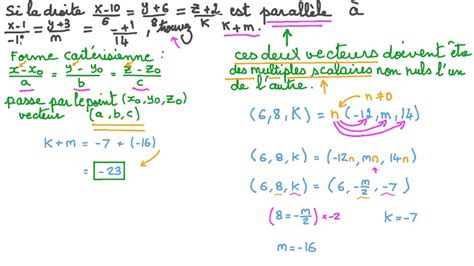 Si la droite x-10/6 = y+6/8 = z+2/K est parallèle à
x-1/-1 = y+3/m = -+1/14, trouvez K+m.
Forme cartésienne :
x-x₀/a = y-y₀/b = z-z₀/c
passe par le point (x₀,y₀,z₀)
vecteur (a,b,c)
K+m = -7 + (-16)
= -23
ces deux vecteurs doivent être
des multiples scalaires non nuls l'un
de l'autre.
n≠0
(6,8,K) = n(-12,m,14)
(6,8,K) = (-12n, mn, 14n)
(6,8,K) = (6, -m/2, -7)
(8 = -m/2) ×-2 K=-7
m=-16